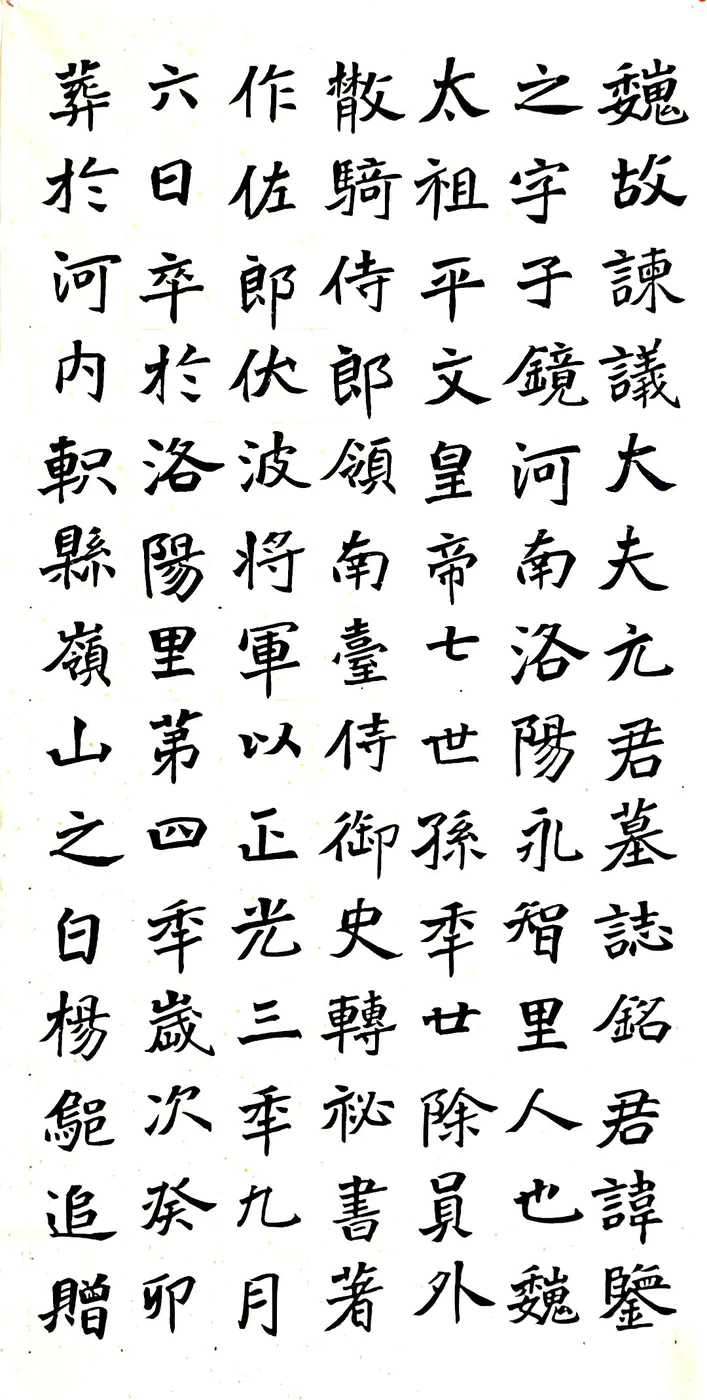 魏故諫議大夫元君墓誌銘君諱鑒
之字子鏡河南洛陽永智里人也魏
太祖平文皇帝七世孫秊廿除員外
散騎侍郎領南臺侍御史轉祕書著
作佐郎伏波將軍以正光三秊九月
六日卒於洛陽里第四秊歲次癸卯
葬於河內軹縣嶺山之白楊鄔追贈